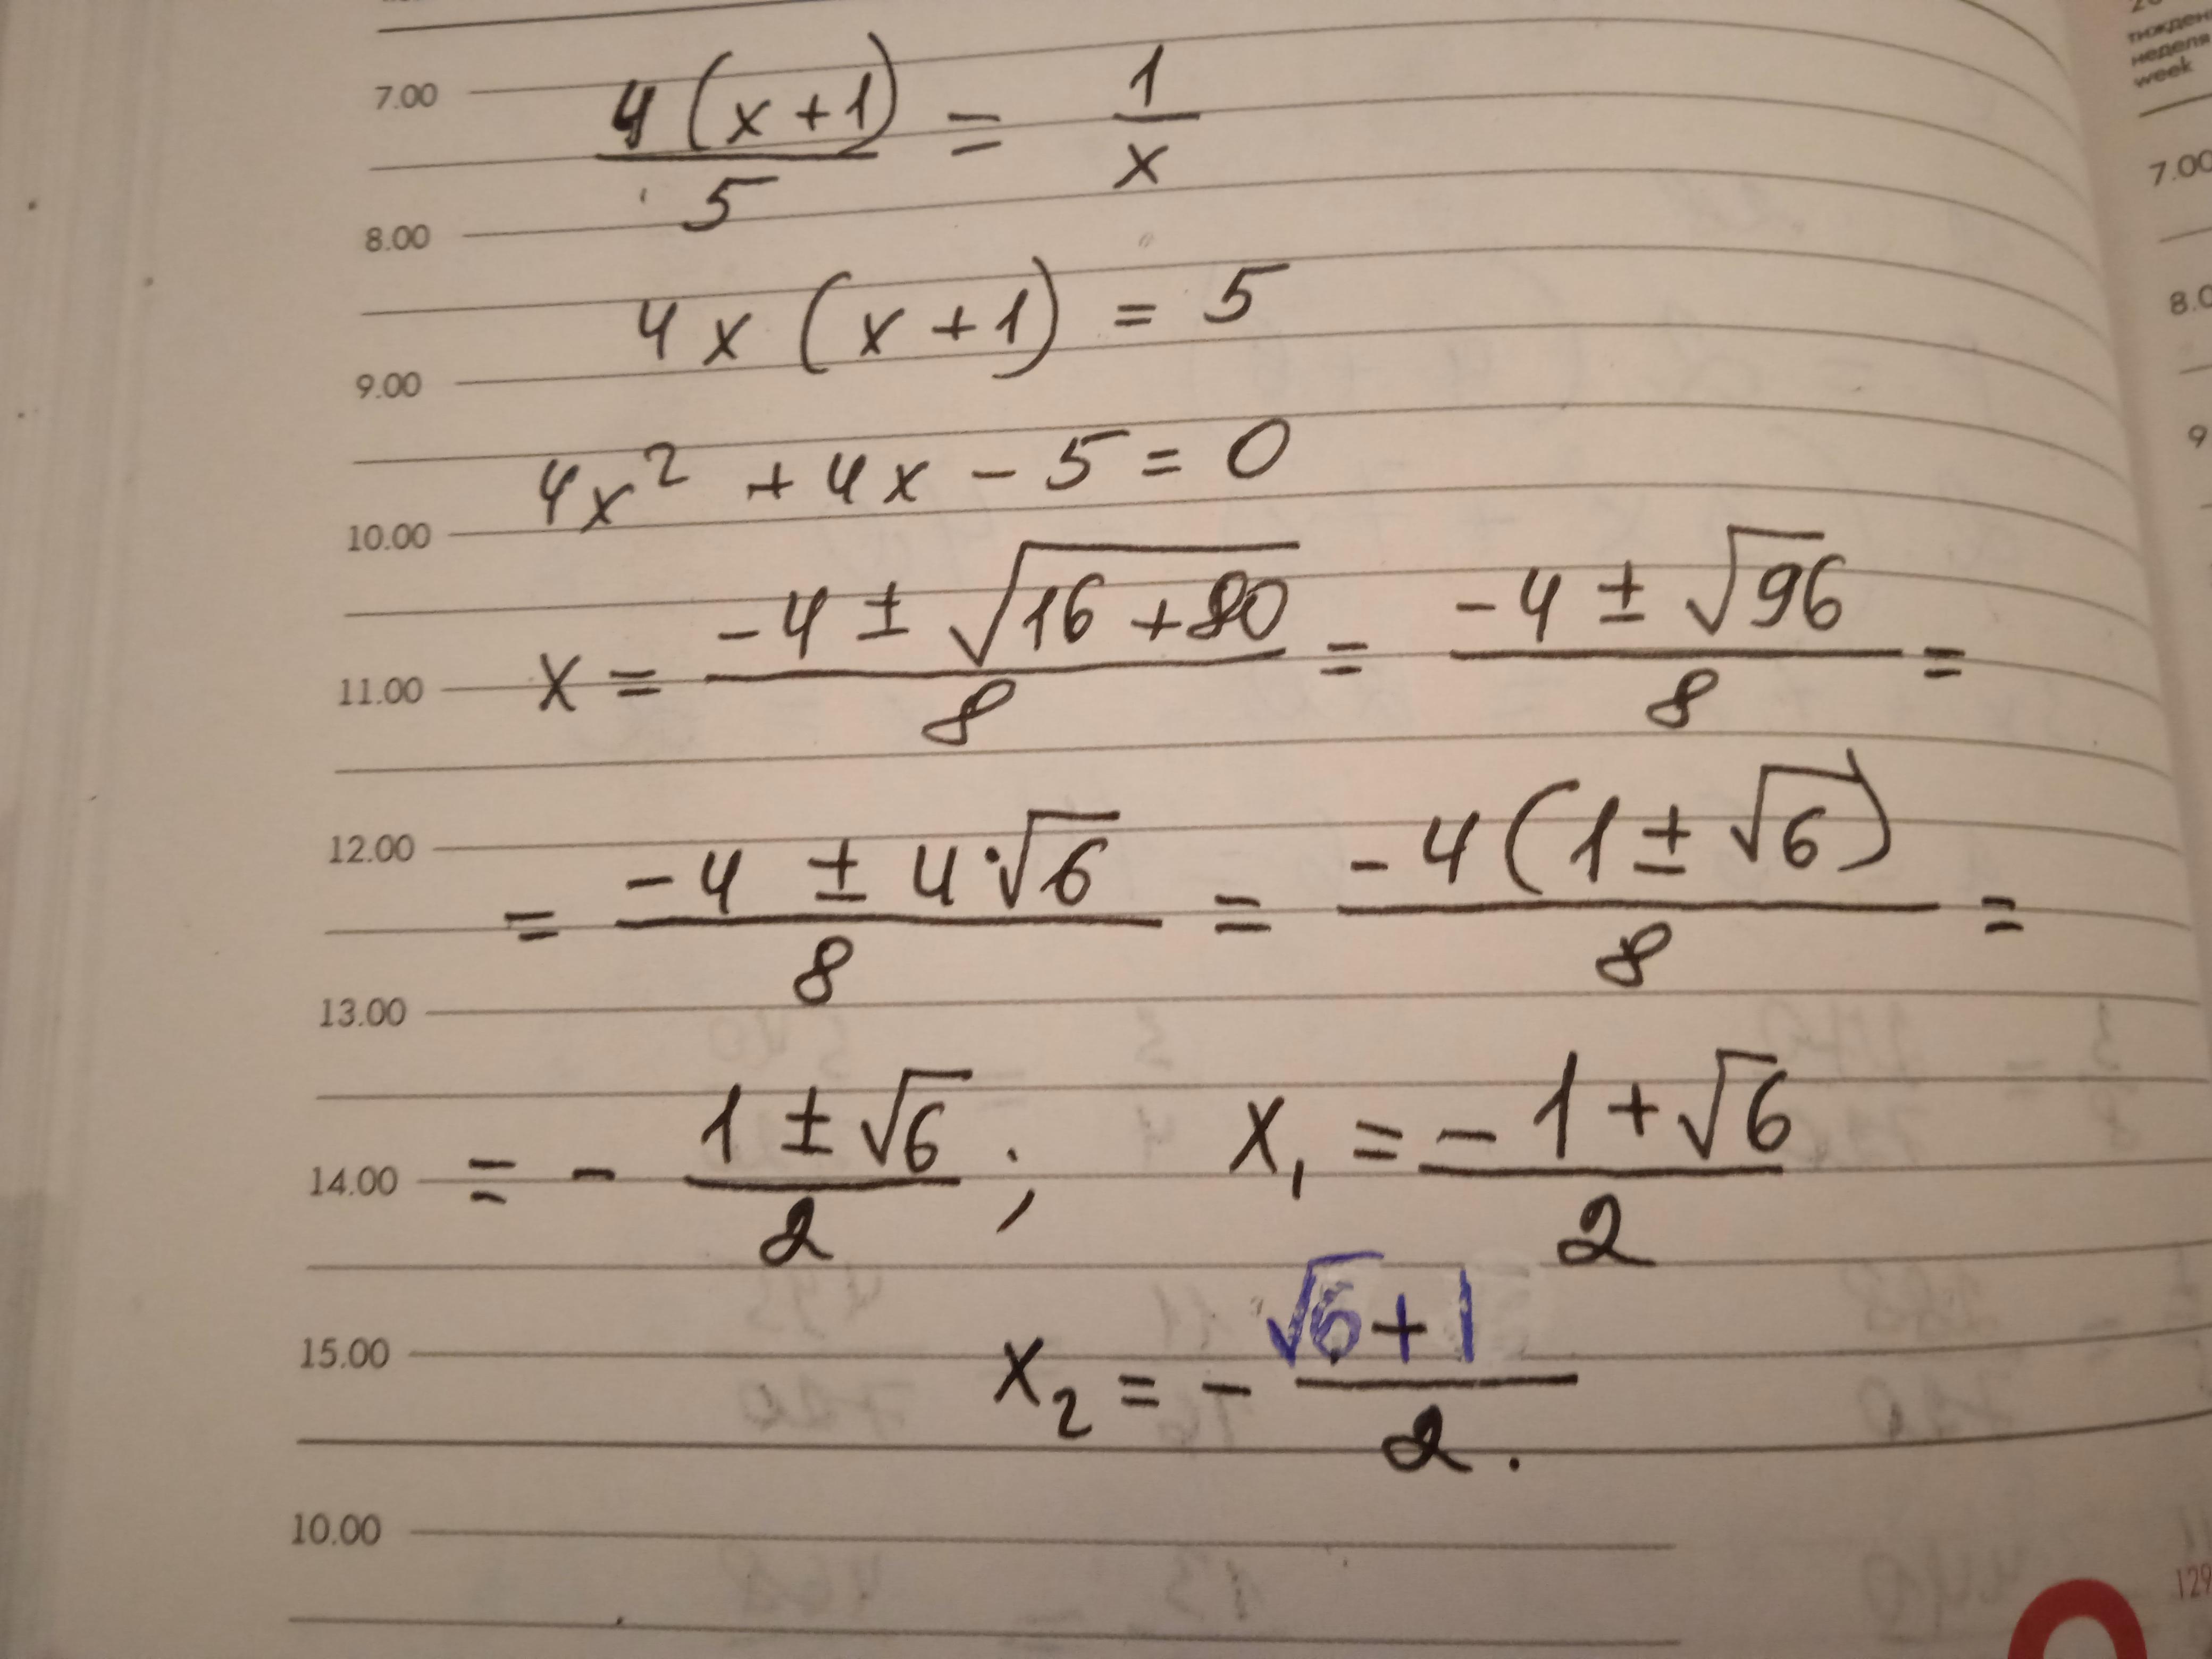 7.00 4(x+1)/5 = 1/x
8.00
4x(x+1) = 5
9.00
4x² + 4x - 5 = 0
10.00
11.00 x = (-4 ± √(16+80))/8 = (-4 ± √96)/8 =
12.00
= (-4 ± 4·√6)/8 = -4(1 ± √6)/8 =
13.00
14.00 = - (1 ± √6)/2 ; x₁ = (-1 + √6)/2
15.00 x₂ = - (√6 + 1)/2 .
10.00
тиждень
неделя
week
7.00
129